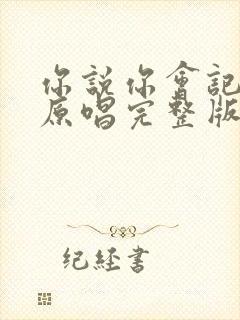 你說你會記
原唱完整版
纪經書